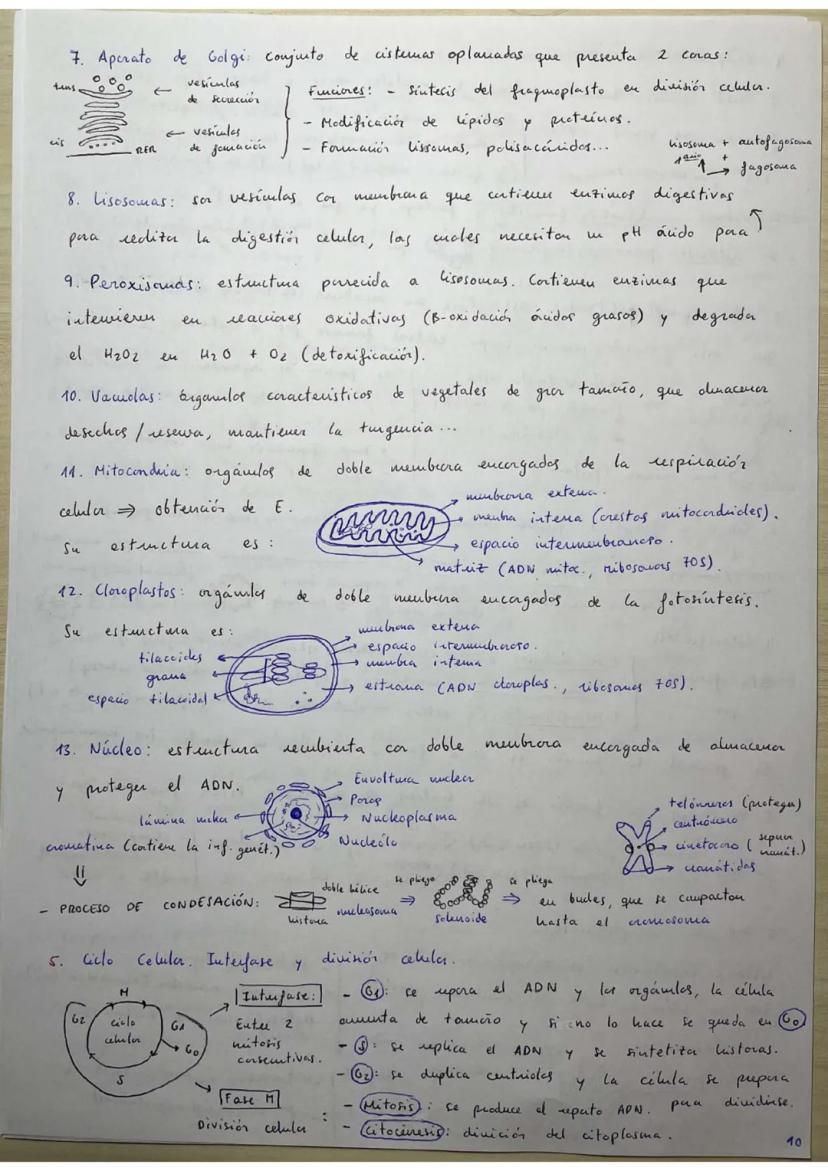 7. Aparato de Golgi: conjunto de cisternas aplanadas que presenta 2 caras:
trans
vesículas de secreción
cis
RER
vesículas de formación
Funciones: - Síntesis del fragmoplasto en división celular.
- Modificación de lípidos y proteínas.
- Formación lisosomas, polisacáridos...
lisosoma + autofagosoma
1ario
+
fagosoma
8. Lisosomas: son vesículas con membrana que contienen enzimas digestivas
para realizar la digestión celular, las cuales necesitan un pH ácido para
9. Peroxisomas: estructura parecida a lisosomas. Contienen enzimas que
intervienen en reacciones oxidativas (β-oxidación ácidos grasos) y degradan
el H2O2 en H2O + O2 (detoxificación).
10. Vacuolas: órganulos característicos de vegetales de gran tamaño, que almacenan
desechos/reserva, mantienen la turgencia...
11. Mitocondria: orgánulos de doble membrana encargados de la respiración
celular ⇒ obtención de E.
Su estructura es:
membrana externa.
membra interna (crestas mitocondriales).
espacio intermembranoso.
matriz (ADN mitoc., ribosomas 70S).
12. Cloroplastos: orgánulos de doble membrana encargados de la fotosíntesis.
Su estructura es:
tilacoides
grana
espacio tilacoidal
membrana externa
espacio intermembranoso.
membra interna
estroma (ADN cloroplas., ribosomas 70S).
13. Núcleo: estructura recubierta con doble membrana encargada de almacenar
y proteger el ADN.
Envoltura nuclear
Poros
Nucleoplasma
Nucleólo
lámina nuclear
cromatina (contiene la inf. genét.)
telómeros (protegen)
centrómero
cinetocoro (separan cromát.)
cromátidas
⇓
- PROCESO DE CONDESACIÓN:
doble hélice
histona
nucleosoma
se pliega
⇒
solenoide
se pliega
⇒
en bucles, que se compactan
hasta el cromosoma
5. Ciclo Celular. Interfase y división celular.
M
G2
G1
G0
S
ciclo celular
Interfase:
Entre 2 mitosis consecutivas.
- G1: se repara el ADN y los orgánulos, la célula
aumenta de tamaño y si no lo hace se queda en G0
- S: se replica el ADN y se sintetiza histonas.
- G2: se duplica centriolos y la célula se prepara
para dividirse.
Fase M
División celular :
- Mitosis: se produce el reparto ADN.
- Citocinesis: división del citoplasma.
10